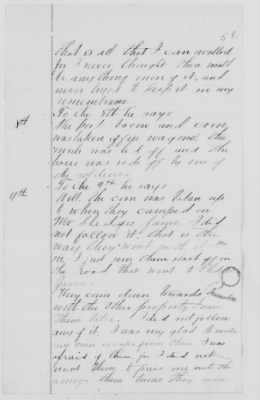 58.
that is all that I can recollect
for I never thought there would
be anything more of it, and
never tried to keep it in my
remembrance
To the 8th he says
8th
The pork bacon and corn
was taken off in wagons, the
mule was led off and the
horse was rode off by one of
the soldiers
To the 9th he says
9th
Well, the corn was taken up
to where they camped on
Mr farm, I did
not follow it. that is the
way they went with it
I just saw them start off on
the road that went to
farm
They came down towards
with the other property from
them. I did not follow
any of it. I was very glad to make
my own escape from them. I was
afraid of them, for I did not
want them to press me into the
them times they were